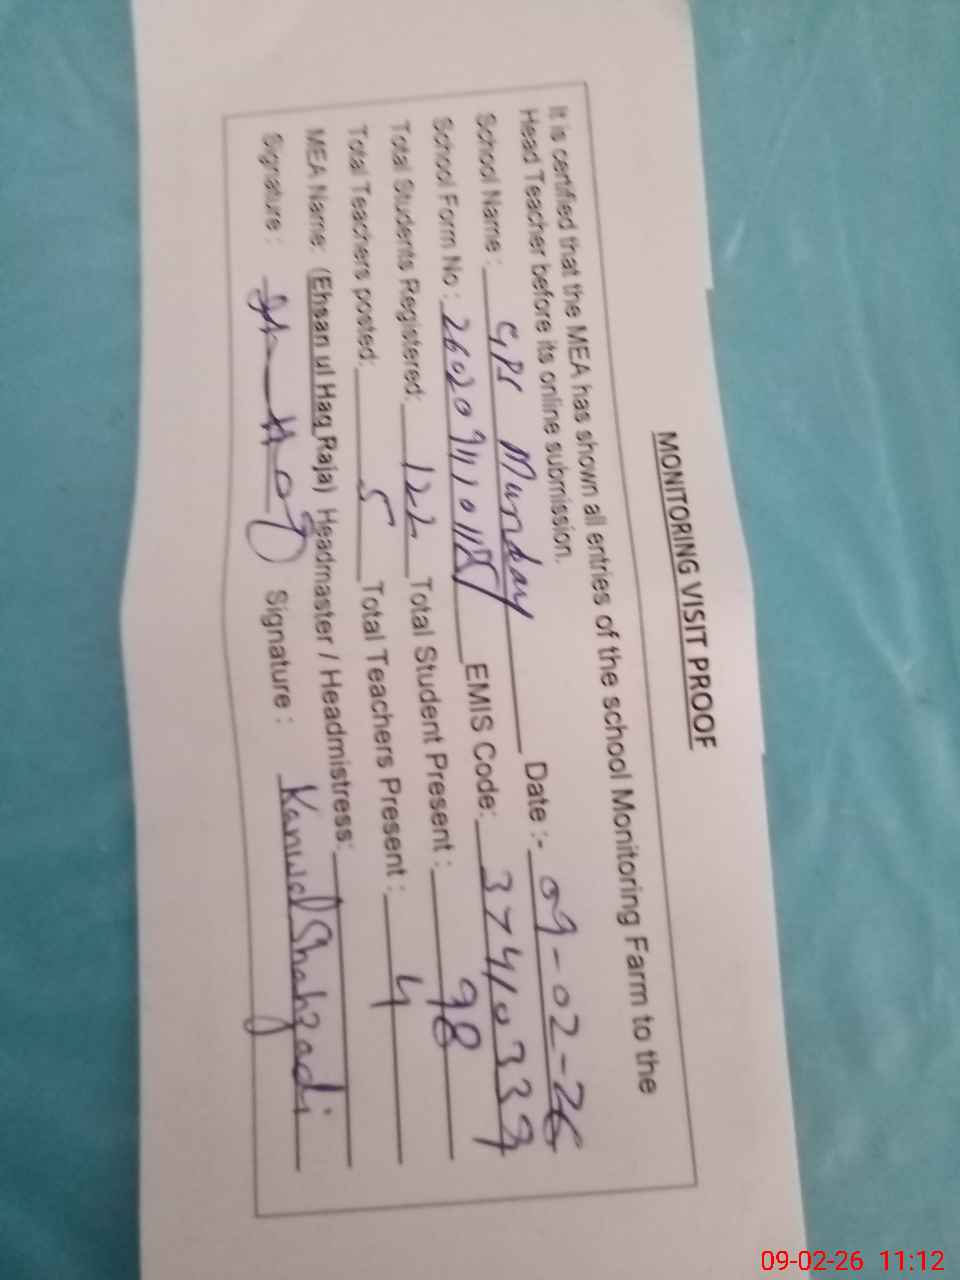 MONITORING VISIT PROOF
It is certified that the MEA has shown all entries of the school Monitoring Farm to the
Head Teacher before its online submission.
School Name : GPS Munday Date :- 09-02-26
School Form No : EMIS Code: 37410339
Total Students Registered: 122 Total Student Present : 98
Total Teachers posted: 5 Total Teachers Present : 4
MEA Name: (Ehsan ul Haq Raja) Headmaster / Headmistress:
Signature : Signature : Kanwal Shahzadi
09-02-26 11:12